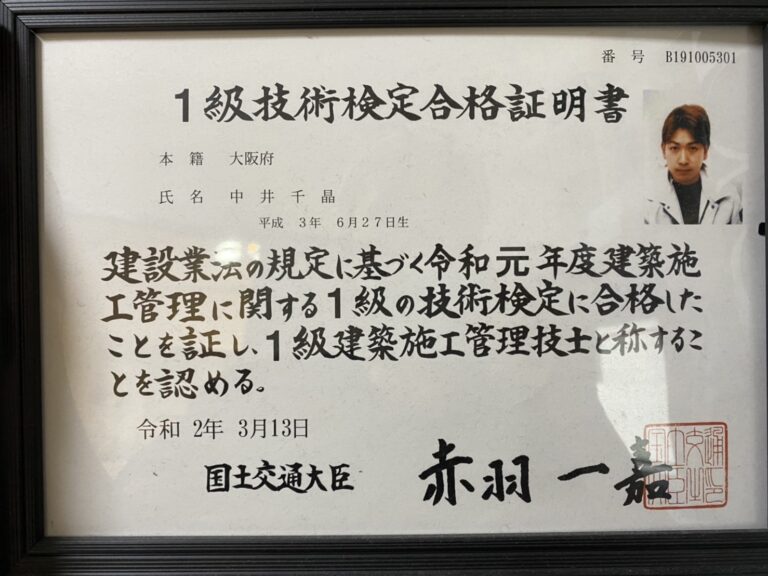 番号 B191005301
1級技術検定合格証明書
本籍 大阪府
氏名 中井千晶
平成 3年 6月27日生
建設業法の規定に基づく令和元年度建築施
工管理に関する1級の技術検定に合格した
ことを証し、1級建築施工管理技士と称するこ
とを認める。
令和 2年 3月13日
国土交通大臣 赤羽一嘉